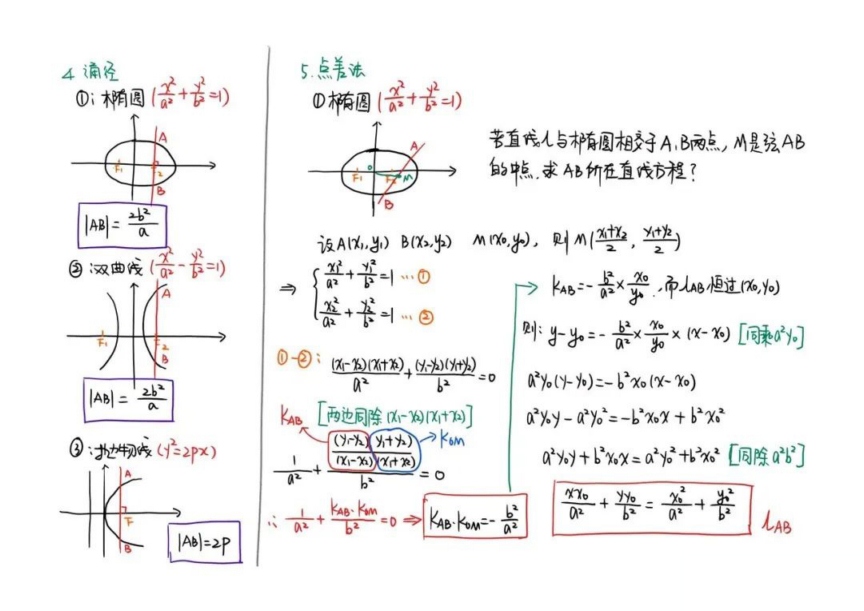 4. 通径
①: 椭圆 (x²/a² + y²/b² = 1)
A
F₁
F₂
B
|AB| = 2b²/a
②: 双曲线 (x²/a² - y²/b² = 1)
A
F₁
F₂
B
|AB| = 2b²/a
③: 抛物线 (y²=2px)
A
F
B
|AB|=2P
5. 点差法
① 椭圆 (x²/a² + y²/b² = 1)
A
F₁
0
F₂
M
B
若直线l与椭圆相交于A,B两点, M是弦AB
的中点, 求AB所在直线方程?
设A(x₁,y₁) B(x₂,y₂) M(x₀,y₀), 则M((x₁+x₂)/2, (y₁+y₂)/2)
⇒ { x₁²/a² + y₁²/b² = 1 … ①
x₂²/a² + y₂²/b² = 1 … ②
①-②: (x₁-x₂)(x₁+x₂)/a² + (y₁-y₂)(y₁+y₂)/b² = 0
KAB [两边同除(x₁-x₂)(x₁+x₂)]
1/a² + ((y₁-y₂)(y₁+y₂)/(x₁-x₂)(x₁+x₂))/b² = 0
KOM
∴ 1/a² + KAB·KOM/b² = 0 ⇒ KAB·KOM = -b²/a²
KAB = -b²/a² × x₀/y₀, 而lAB恒过(x₀,y₀)
则: y-y₀ = -b²/a² × x₀/y₀ × (x-x₀) [同乘a²y₀]
a²y₀(y-y₀) = -b²x₀(x-x₀)
a²y₀y - a²y₀² = -b²x₀x + b²x₀²
a²y₀y + b²x₀x = a²y₀² + b²x₀² [同除a²b²]
xx₀/a² + yy₀/b² = x₀²/a² + y₀²/b² lAB